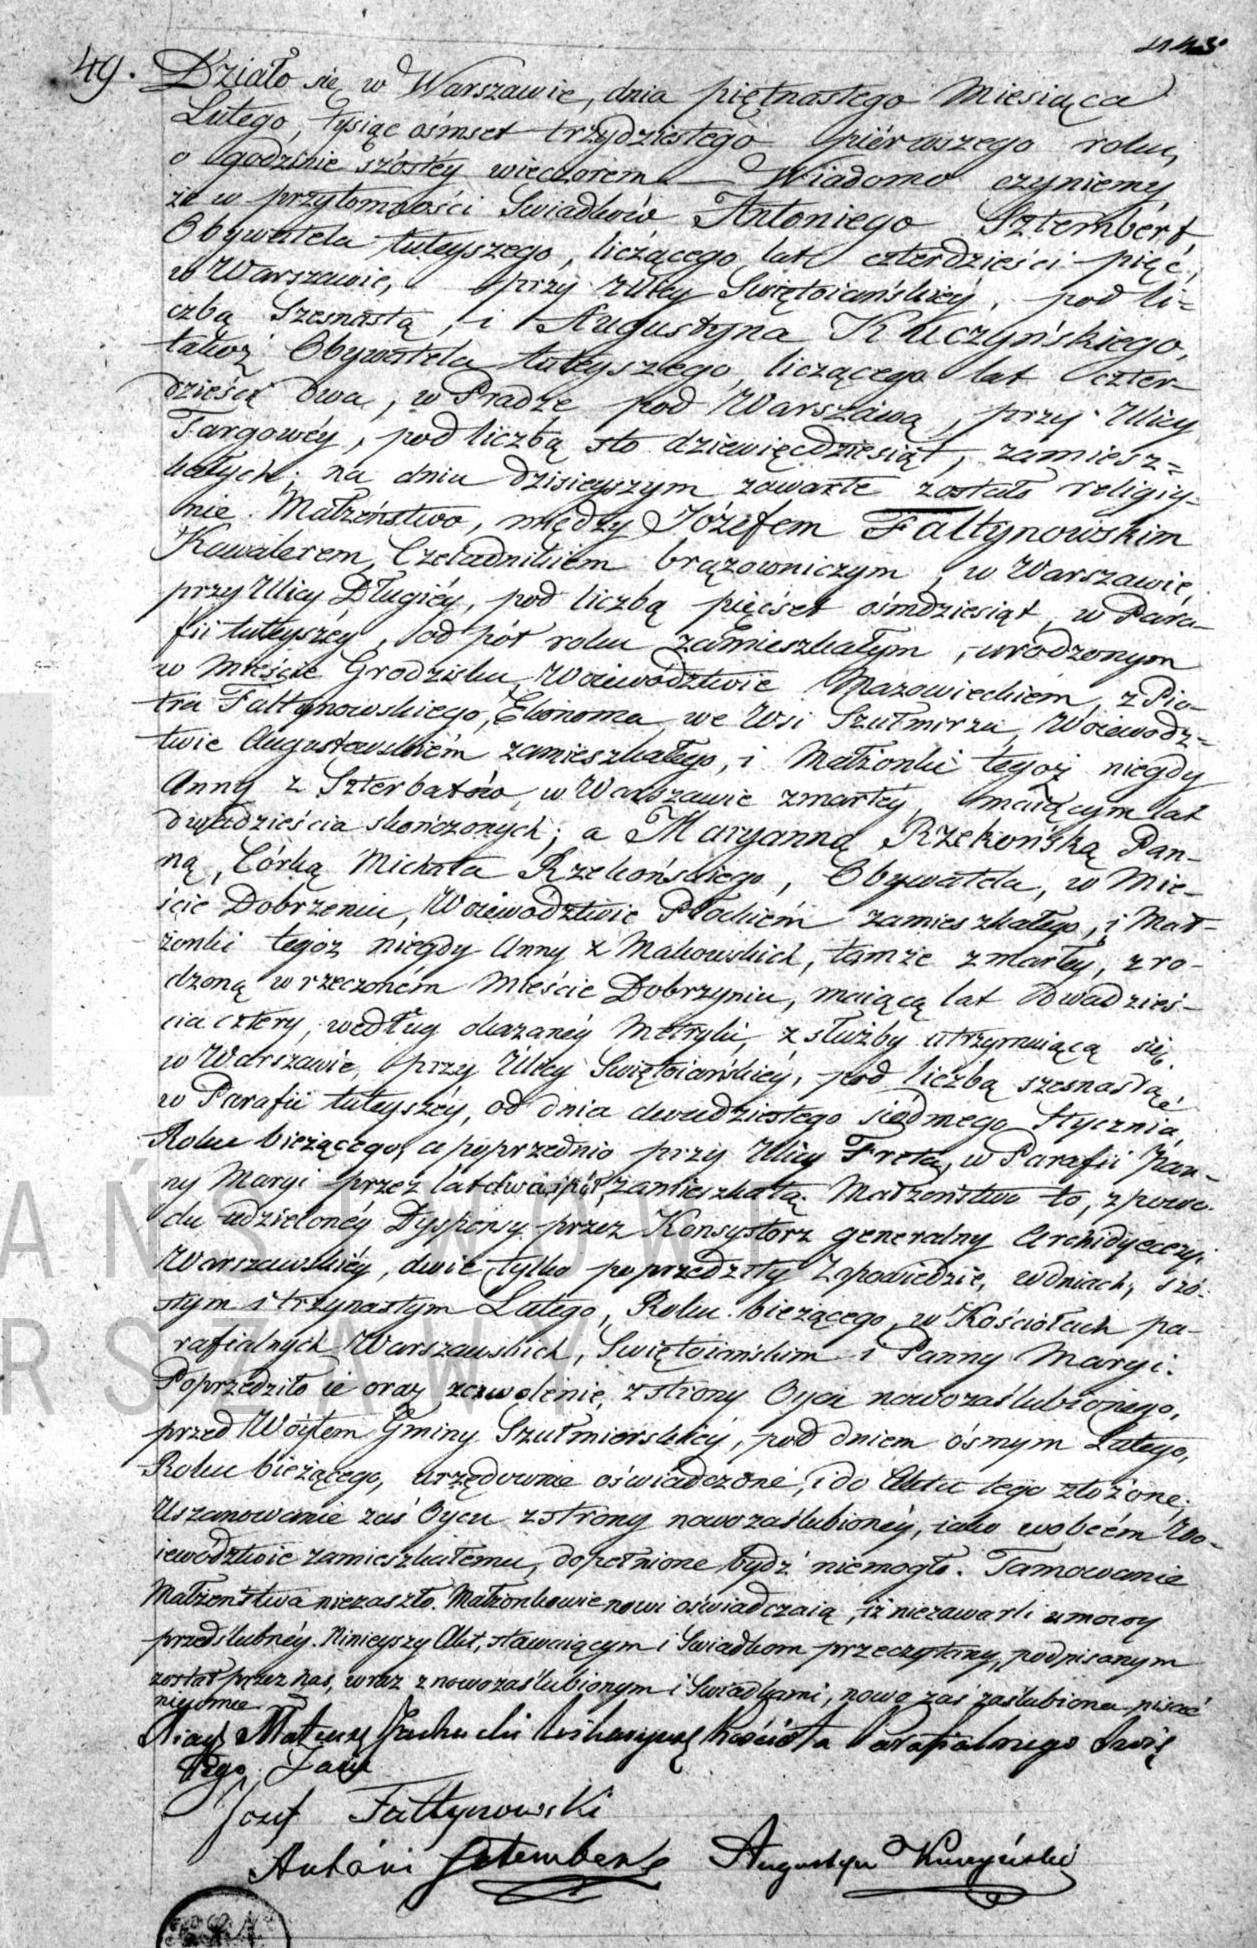 49.
Działo się w Warszawie, dnia piętnastego Miesiąca
Lutego, tysiąc ośmset trzydziestego pierwszego roku,
o godzinie szóstéy wieczorem — Wiadomo czyniemy
że w przytomności Swiadków Antoniego Sztembért,
Obywatela tuteyszego, liczącego lat czterdzieści pięć,
w Warszawie, przy ulicy Swiętoiańskiéy, pod li-
czbą szesnastą, i Augustyna Kuczyńskiego,
także Obywatela tuteyszego, liczącego lat czter-
dzieści dwa, w Pradze pod Warszawą, przy Ulicy
Targowéy, pod liczbą sto dziewięćdziesiąt, zamiesz=
kałych; na dniu dzisieyszym zawarte zostało religiy-
nie Małżeństwo, między Józefem Faltynowskim
Kawalerem, Czeladnikiem brązowniczym, w Warszawie,
przy Ulicy Długiéy, pod liczbą pięćset ośmdziesiąt, w Para-
fii tuteyszéy, od pół roku zamieszkałym, urodzonym
w Mieście Grodzisku, Woiewództwie Mazowieckiém, z Pio-
tra Faltynowskiego, Ekonoma we Wsi Szulmirzu, Woiewódz=
twie Augustowskiém zamieszkałego, i Małżonki tegoż niegdy
Anny z Szterbatów, w Warszawie zmarłéy, maiącym lat
dwadzieścia skończonych; a Maryanną Rzekońską Pan-
ną, Córką Michała Rzekońskiego, Obywatela, w Mie-
ście Dobrzeniu, Woiewództwie Płockiém zamieszkałego, i Mał-
żonki tegoż niegdy Anny z Makowskich, tamże zmarłéy, zro-
dzoną w rzeczoném Mieście Dobrzyniu, maiącą lat Dwadzieś-
cia cztery, według okazanéy Metryki, z służby utrzymuiącą się,
w Warszawie, przy Ulicy Swiętoiańskiéy, pod liczbą szesnastą,
w Parafii tuteyszéy, od dnia dwudziestego siódmego Stycznia,
Roku bieżącego, a poprzednio przy Ulicy Freta, w Parafii Pan-
ny Maryi przez lat dwa i pół, zamieszkałą. Małżeństwo to, z powo-
du udzielonéy Dyspensy przez Konsystorz generalny Archidyecezyi
Warszawskiéy, dwie tylko poprzedziły Zapowiedzie, w dniach, szó-
stym i trzynastym Lutego, Roku bieżącego, w Kościołach pa-
rafialnych Warszawskich, Swiętoiańskim i Panny Maryi.
Poprzedziło ie oraz zezwolenie, z strony Oyca nowozaślubionego,
przed Woytem Gminy Szulmierskiéy, pod dniem ósmym Lutego,
Roku bieżącego, urzędownie oświadczoné, i do Aktu tego złożoné;
Uszanowanie zaś Oycu z strony nowozaślubionéy, iako w obcém Wo-
iewództwie zamieszkałemu, dopełnione bydź niemogło. Tamowanie
Małżeństwa niezaszło. Małżonkowie nowi oświadczaią, iż niezawarli umowy
przedślubnéy. Ninieyszy Akt, stawaiącym i Swiadkom przeczytany, podpisanym
został przez Nas, wraz z nowozaślubionym i Swiadkami, nowo zaś zaślubiona pisać
nieumie.
Xiądz Mateusz Wikaryusz Kościoła Parafialnego Świę
tego Jana
Jozef Faltynowski
Antoni Sztembert Augustyn Kuczyński
AŃSTWOWE
RSZAWY